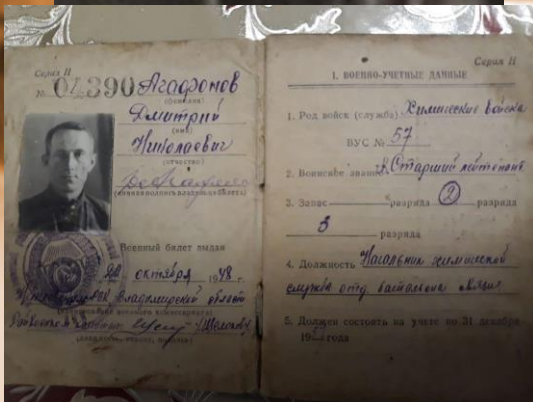 Серия II
№ 04390 Агафонов
(фамилия)
Дмитрий
(имя)
Николаевич
(отчество)
(личная подпись владельца билета)
Военный билет выдан
20 октября 1948 г.
Владимирской области
Серия II
I. ВОЕННО-УЧЕТНЫЕ ДАННЫЕ
1. Род войск (служба) Химические войска
ВУС № 57
2. Воинское звание Старший лейтенант
3. Запас разряда 2 разряда
3 разряда
4. Должность Начальник химической
служба отд. батальона связи
5. Должен состоять на учете по 31 декабря
195 года